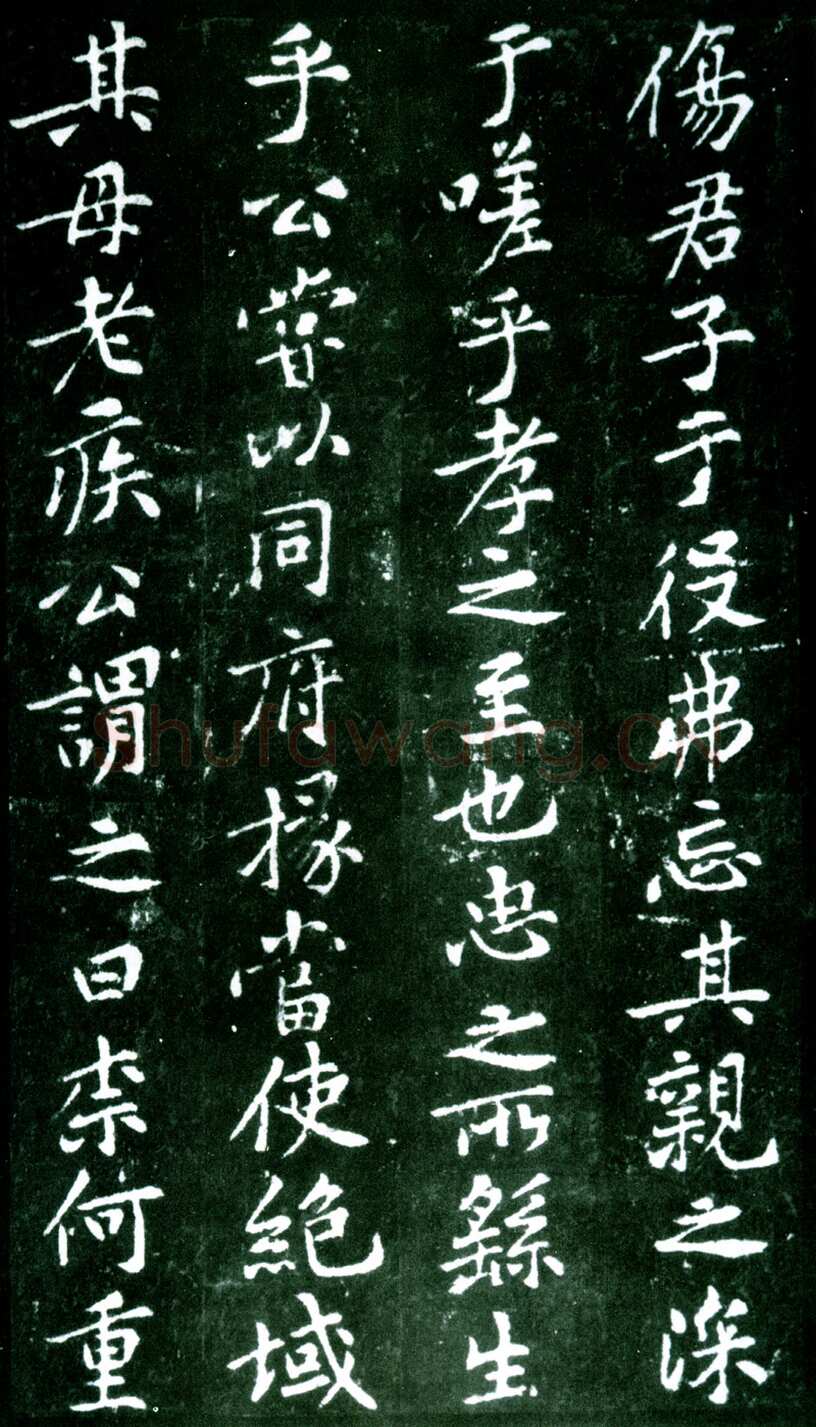 傷君子于役弗忘其親之深
于嗟乎孝之至也忠之所繇生
乎公嘗以同府掾當使絕域
其母老疾公謂之曰柰何重
Shufawang.cn